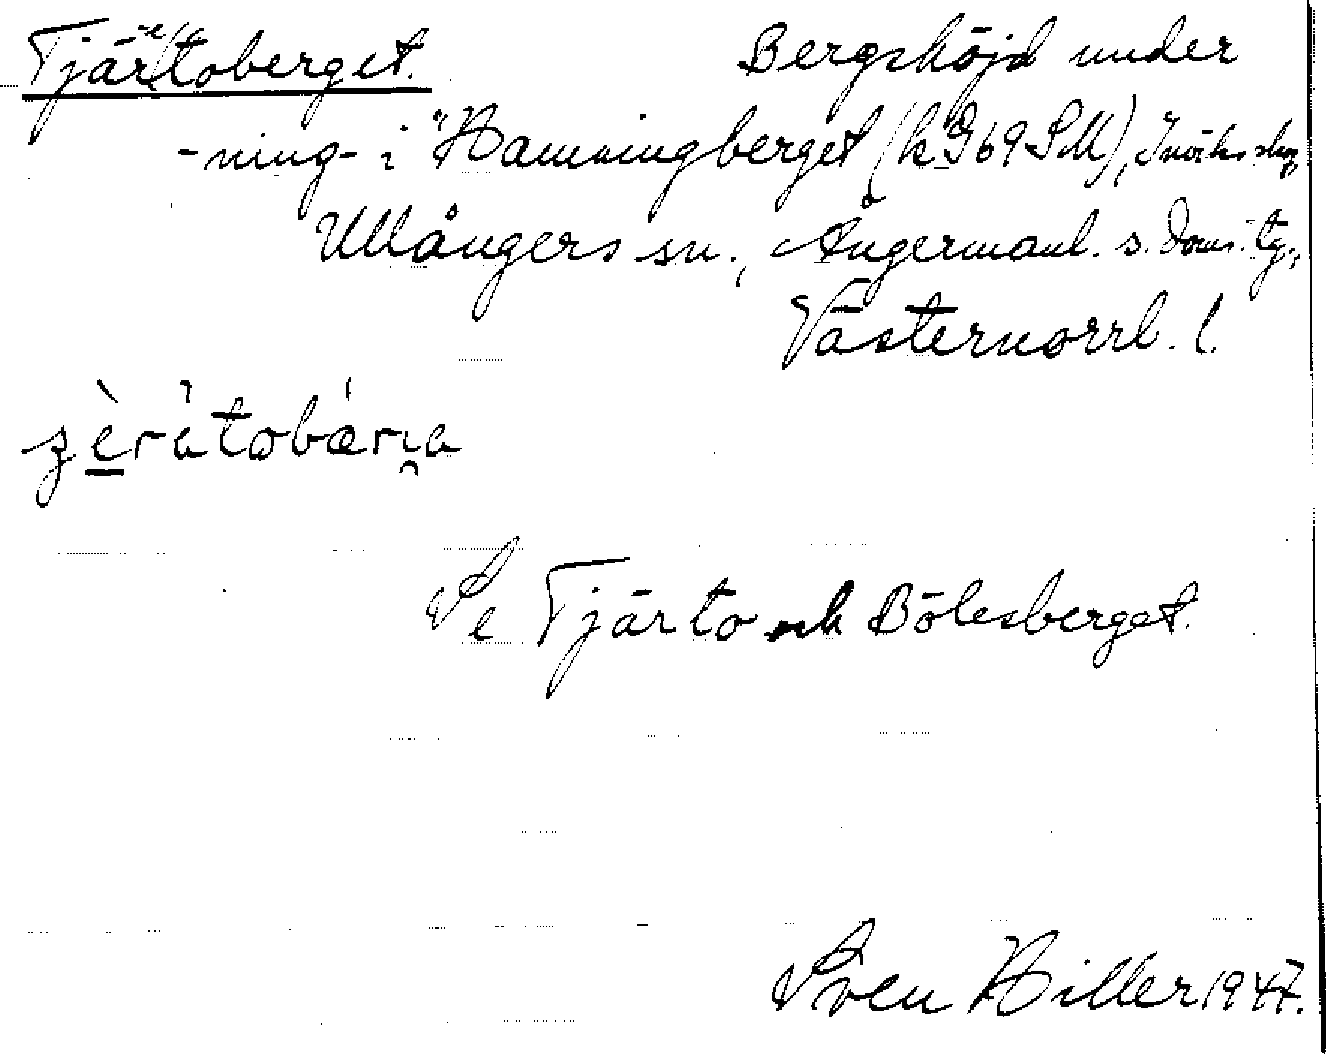 Tjärtoberget. Bergshöjd under
-ning- i "Hamningberget (k G69SM),
Ullångers sn., Ångermanl. s. doms. tg.,
Västernorrl. l.
Se Tjärto och Bölesberget.
Sven Hiller 1947.